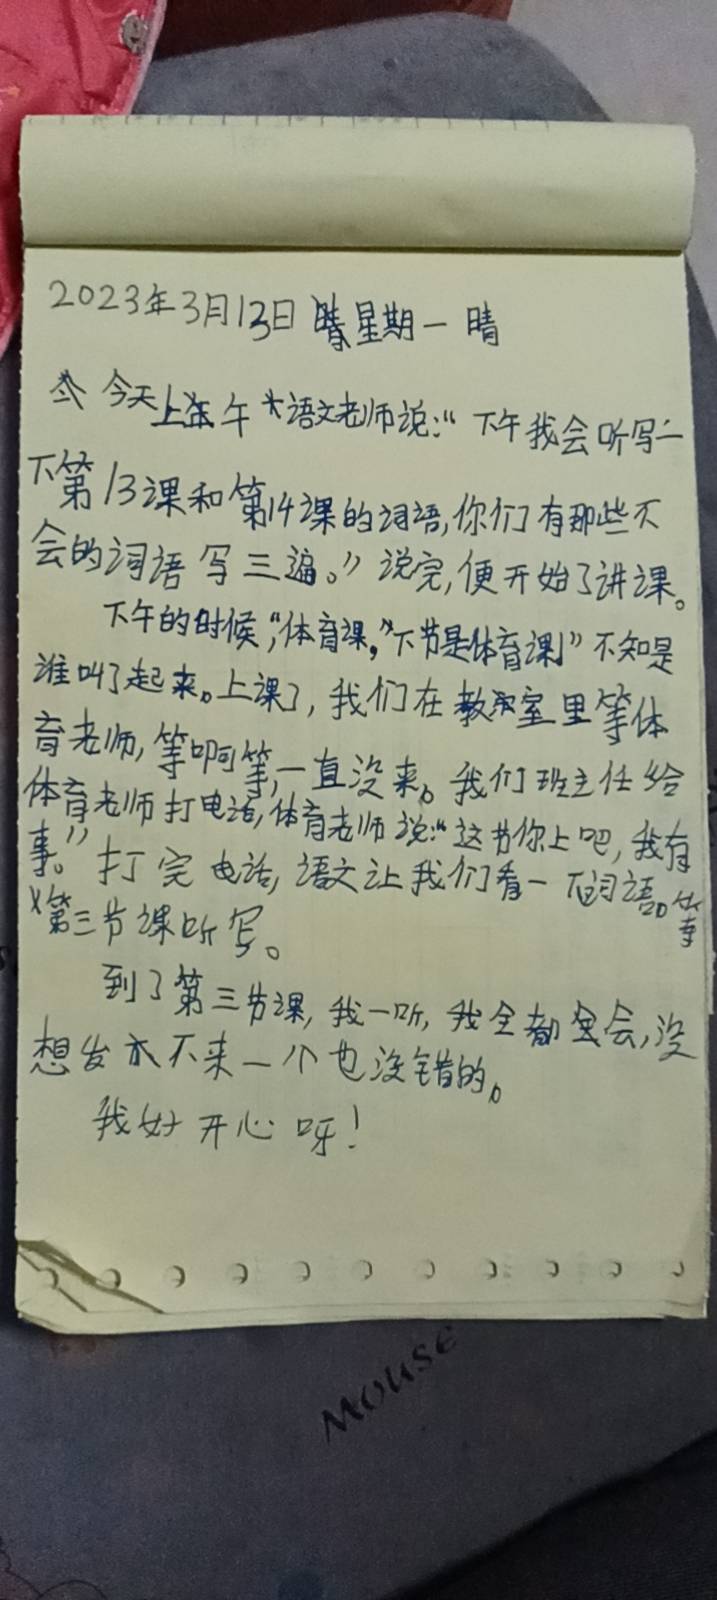 2023年3月13日 星期一 晴
今天上午语文老师说:“下午我会听写一
下第13课和第14课的词语,你们有那些不
会的词语写三遍。”说完,便开始了讲课。
下午的时候,“体育课,”“下节是体育课!”不知是
谁叫了起来。上课了,我们在教室里等体
育老师,等啊等,一直没来。我们班主任给
体育老师打电话,体育老师说:“这节你上吧,我有
事。”打完电话,语文让我们看一下词语。等
第三节课听写。
到了第三节课,我一听,我全都会,没
想发下来一个也没错的。
我好开心呀!
Mouse